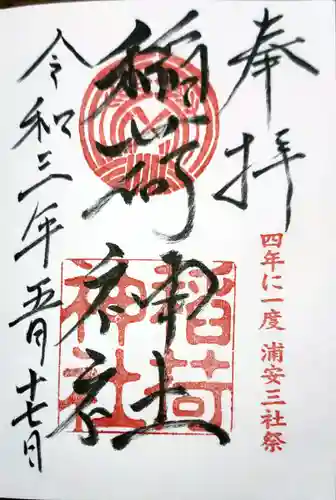 奉拝
四年に一度 浦安三社祭
稲荷神社
稲荷
神社
令和三年五月十七日